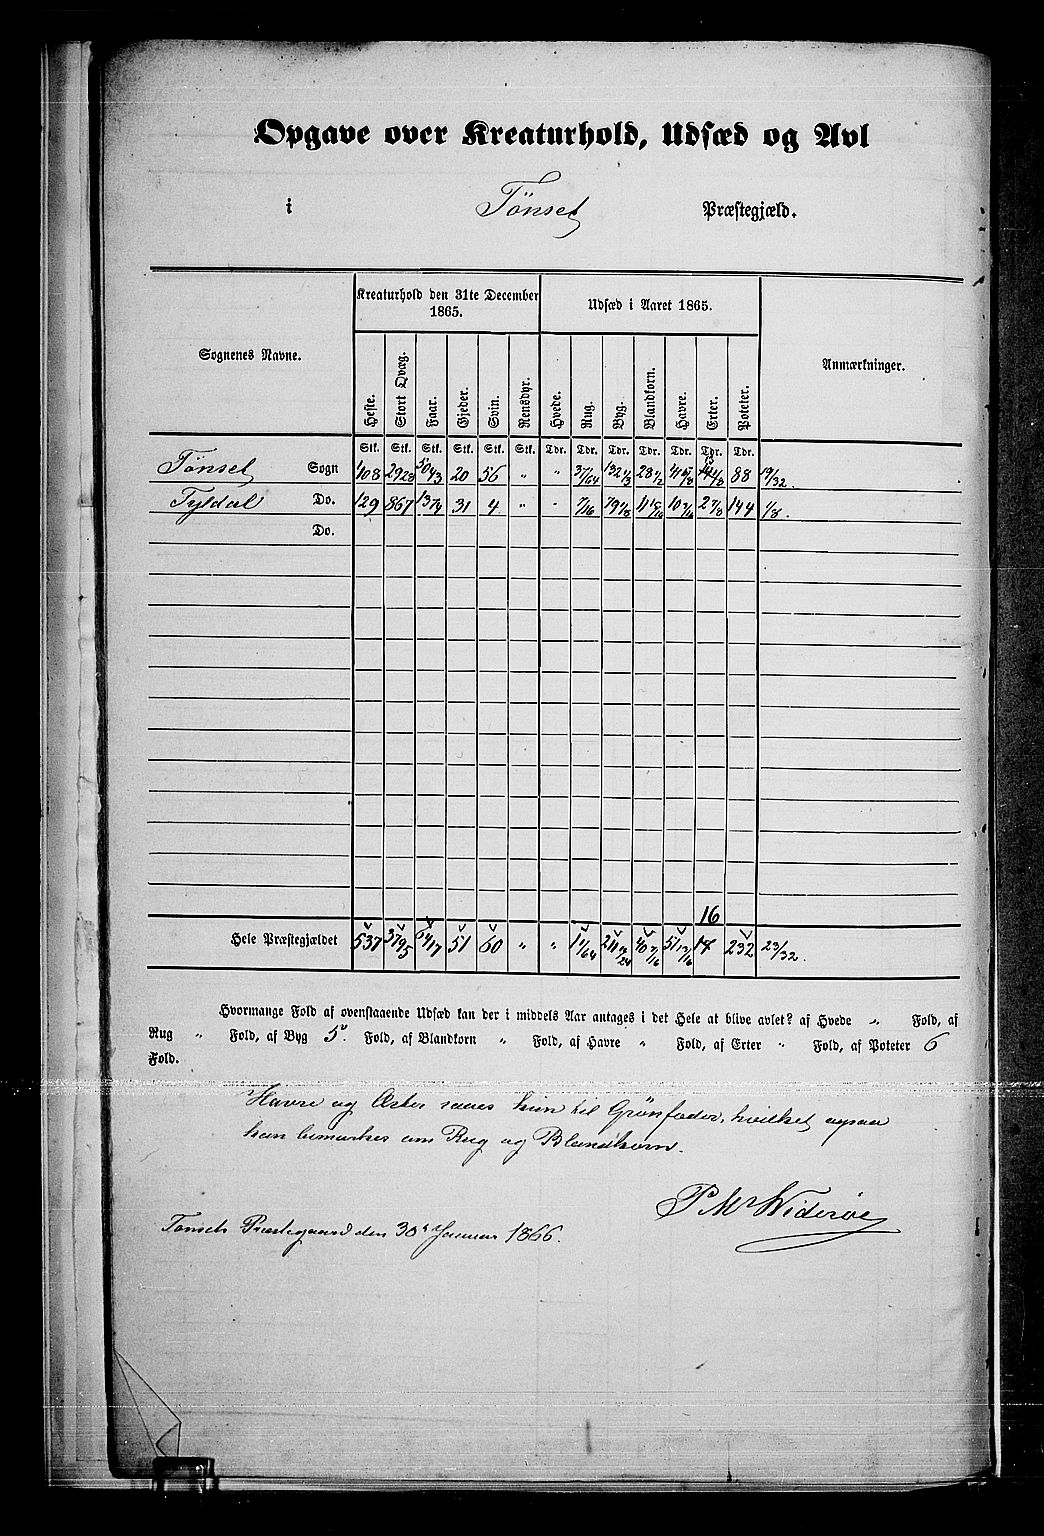 Opgave over Kreaturhold, Udsæd og Avl
i Tönset Præstegjæld.
Sognenes Navne.
Kreaturhold den 31te December 1865.
Udsæd i Aaret 1865.
Anmærkninger.
Heste. Stort Qvæg. Faar. Gjeder. Svin. Rensdyr. Hvede. Rug. Byg. Blandkorn. Havre. Erter. Poteter.
Stk. Stk. Stk. Stk. Stk. Stk. Tdr. Tdr. Tdr. Tdr. Tdr. Tdr. Tdr.
Tönset Sogn 408 2928 5043 20 56 " " 37/64 132 1/3 28 1/2 88 19/32.
Tyldal Do. 129 867 1374 31 4 " " 7/16 79 1/8 11 15/16 10 3/16 2 7/8 144 1/8.
Do.
16
Hele Præstegjældet 537 3795 6417 51 60 " " 1 1/64 211 11/24 40 7/16 51 13/16 232 23/32.
Hvormange Fold af ovenstaaende Udsæd kan der i middels Aar antages i det Hele at blive avlet? af Hvede " Fold, af
Rug " Fold, af Byg 5. Fold, af Blandkorn " Fold, af Havre " Fold, af Erter " Fold, af Poteter 6
Fold.
Havre og Erter saaes kun til Grönfoder, hvilket ogsaa
kan bemærkes om Rug og Blandkorn.
P M Widerøe
Tönsets Præstegaard den 30 Januar 1866.